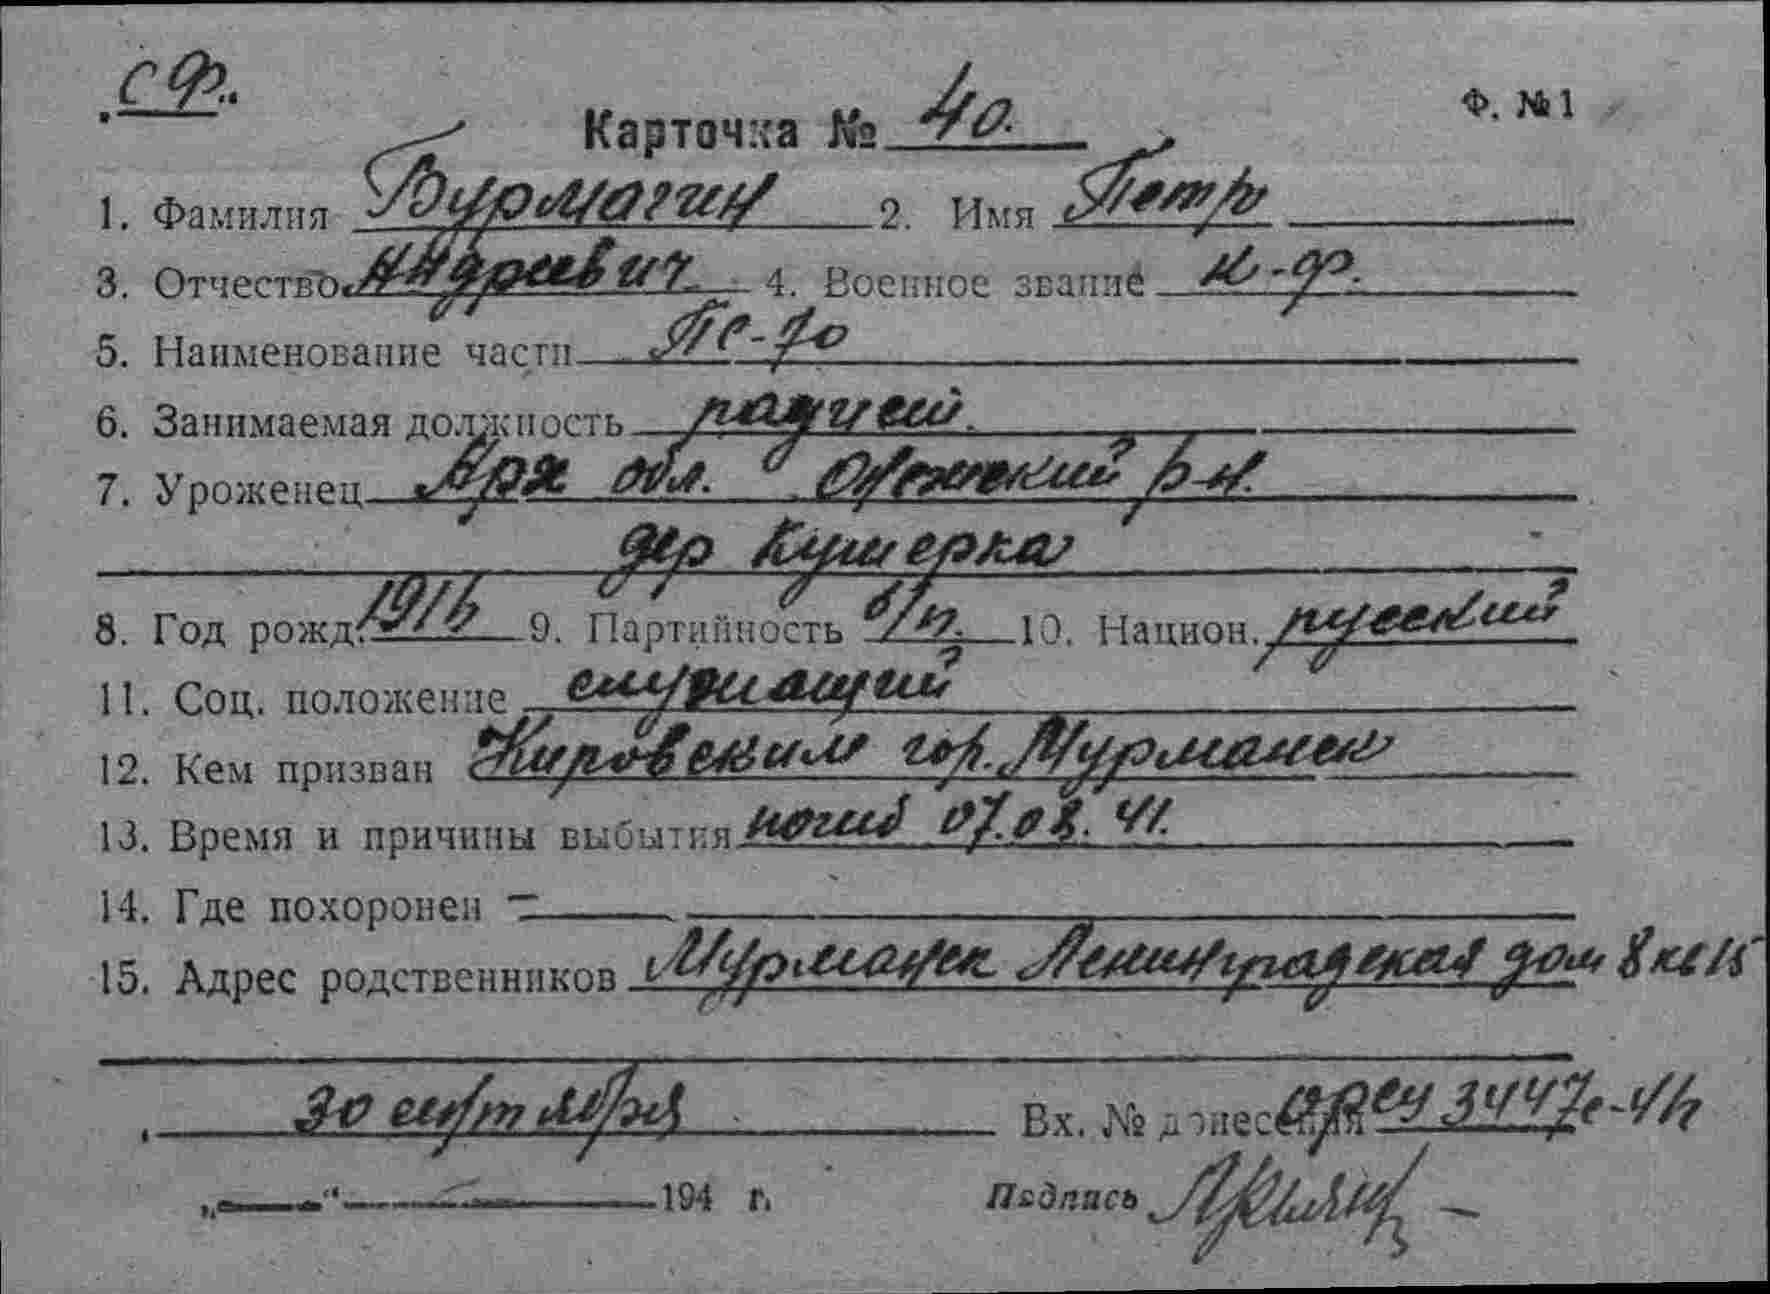 СФ.
Ф. №1
Карточка № 40.
1. Фамилия Бурмагин 2. Имя Петр
3. Отчество Андреевич 4. Военное звание к-ф.
5. Наименование части ПС-70
6. Занимаемая должность радист.
7. Уроженец Арх обл. Онежский р-н.
дер Кушерка
8. Год рожд. 1916 9. Партийность б/п. 10. Национ. русский
11. Соц. положение служащий
12. Кем призван Кировским гор. Мурманск
13. Время и причины выбытия погиб 07.08.41.
14. Где похоронен —
15. Адрес родственников Мурманск Ленинградская дом 8 кв 15
30 
Вх. № донесения 3447с-41г
„ “ 194 г. Подпись